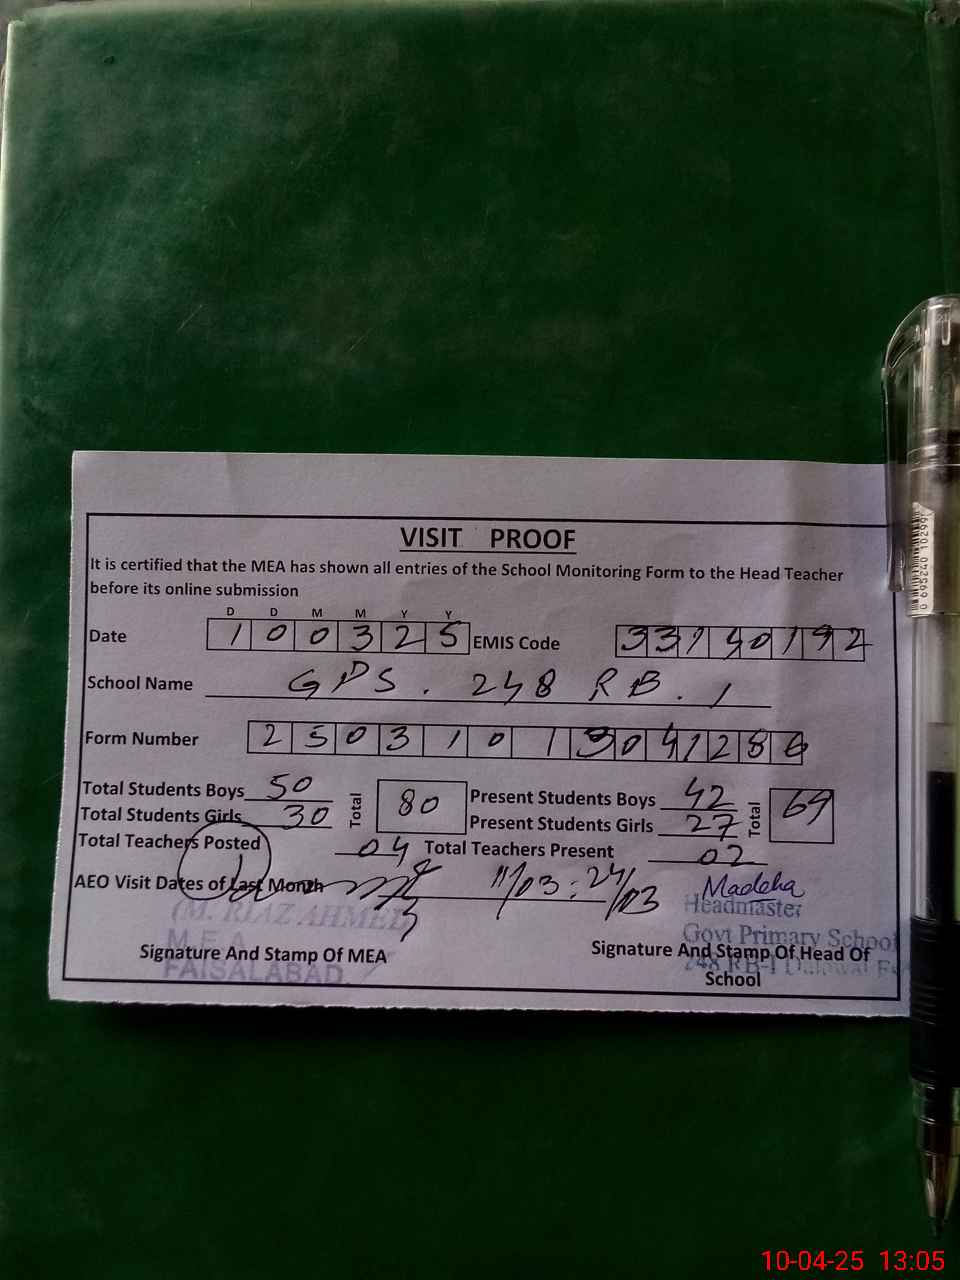 VISIT PROOF
It is certified that the MEA has shown all entries of the School Monitoring Form to the Head Teacher
before its online submission
D D M M Y Y
Date 1 0 0 3 2 5 EMIS Code 3 3 1 4 0 1 9 2
School Name GPS . 248 RB . 1
Form Number 2 5 0 3 1 0 1 3 0 4 1 2 8 6
Total Students Boys 50 Total 80 Present Students Boys 42 Total 69
Total Students Girls 30 Present Students Girls 27
Total Teachers Posted 04 Total Teachers Present 02
AEO Visit Dates of Last Month 11/03 : 24/03 Madeha
(M. RIAZ AHMED) Headmaster
M.E.A Govt Primary School
Signature And Stamp Of MEA Signature And Stamp Of Head Of
FAISALABAD. 248 RB-I
School
0 695240 10299
10-04-25 13:05